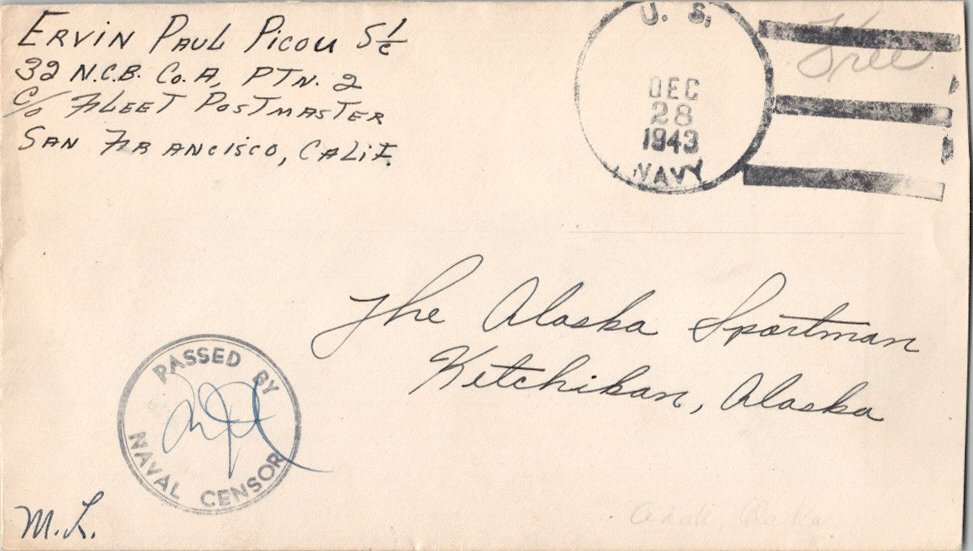 ERVIN PAUL PICOU S 1/c
32 N.C.B. Co. A, PTN. 2
c/o FLEET POSTMASTER
SAN FRANCISCO, CALIF.
U. S.
DEC
28
1943
NAVY
Free
The Alaska Sportman
Ketchikan, Alaska
PASSED BY
NAVAL CENSOR
M. L.